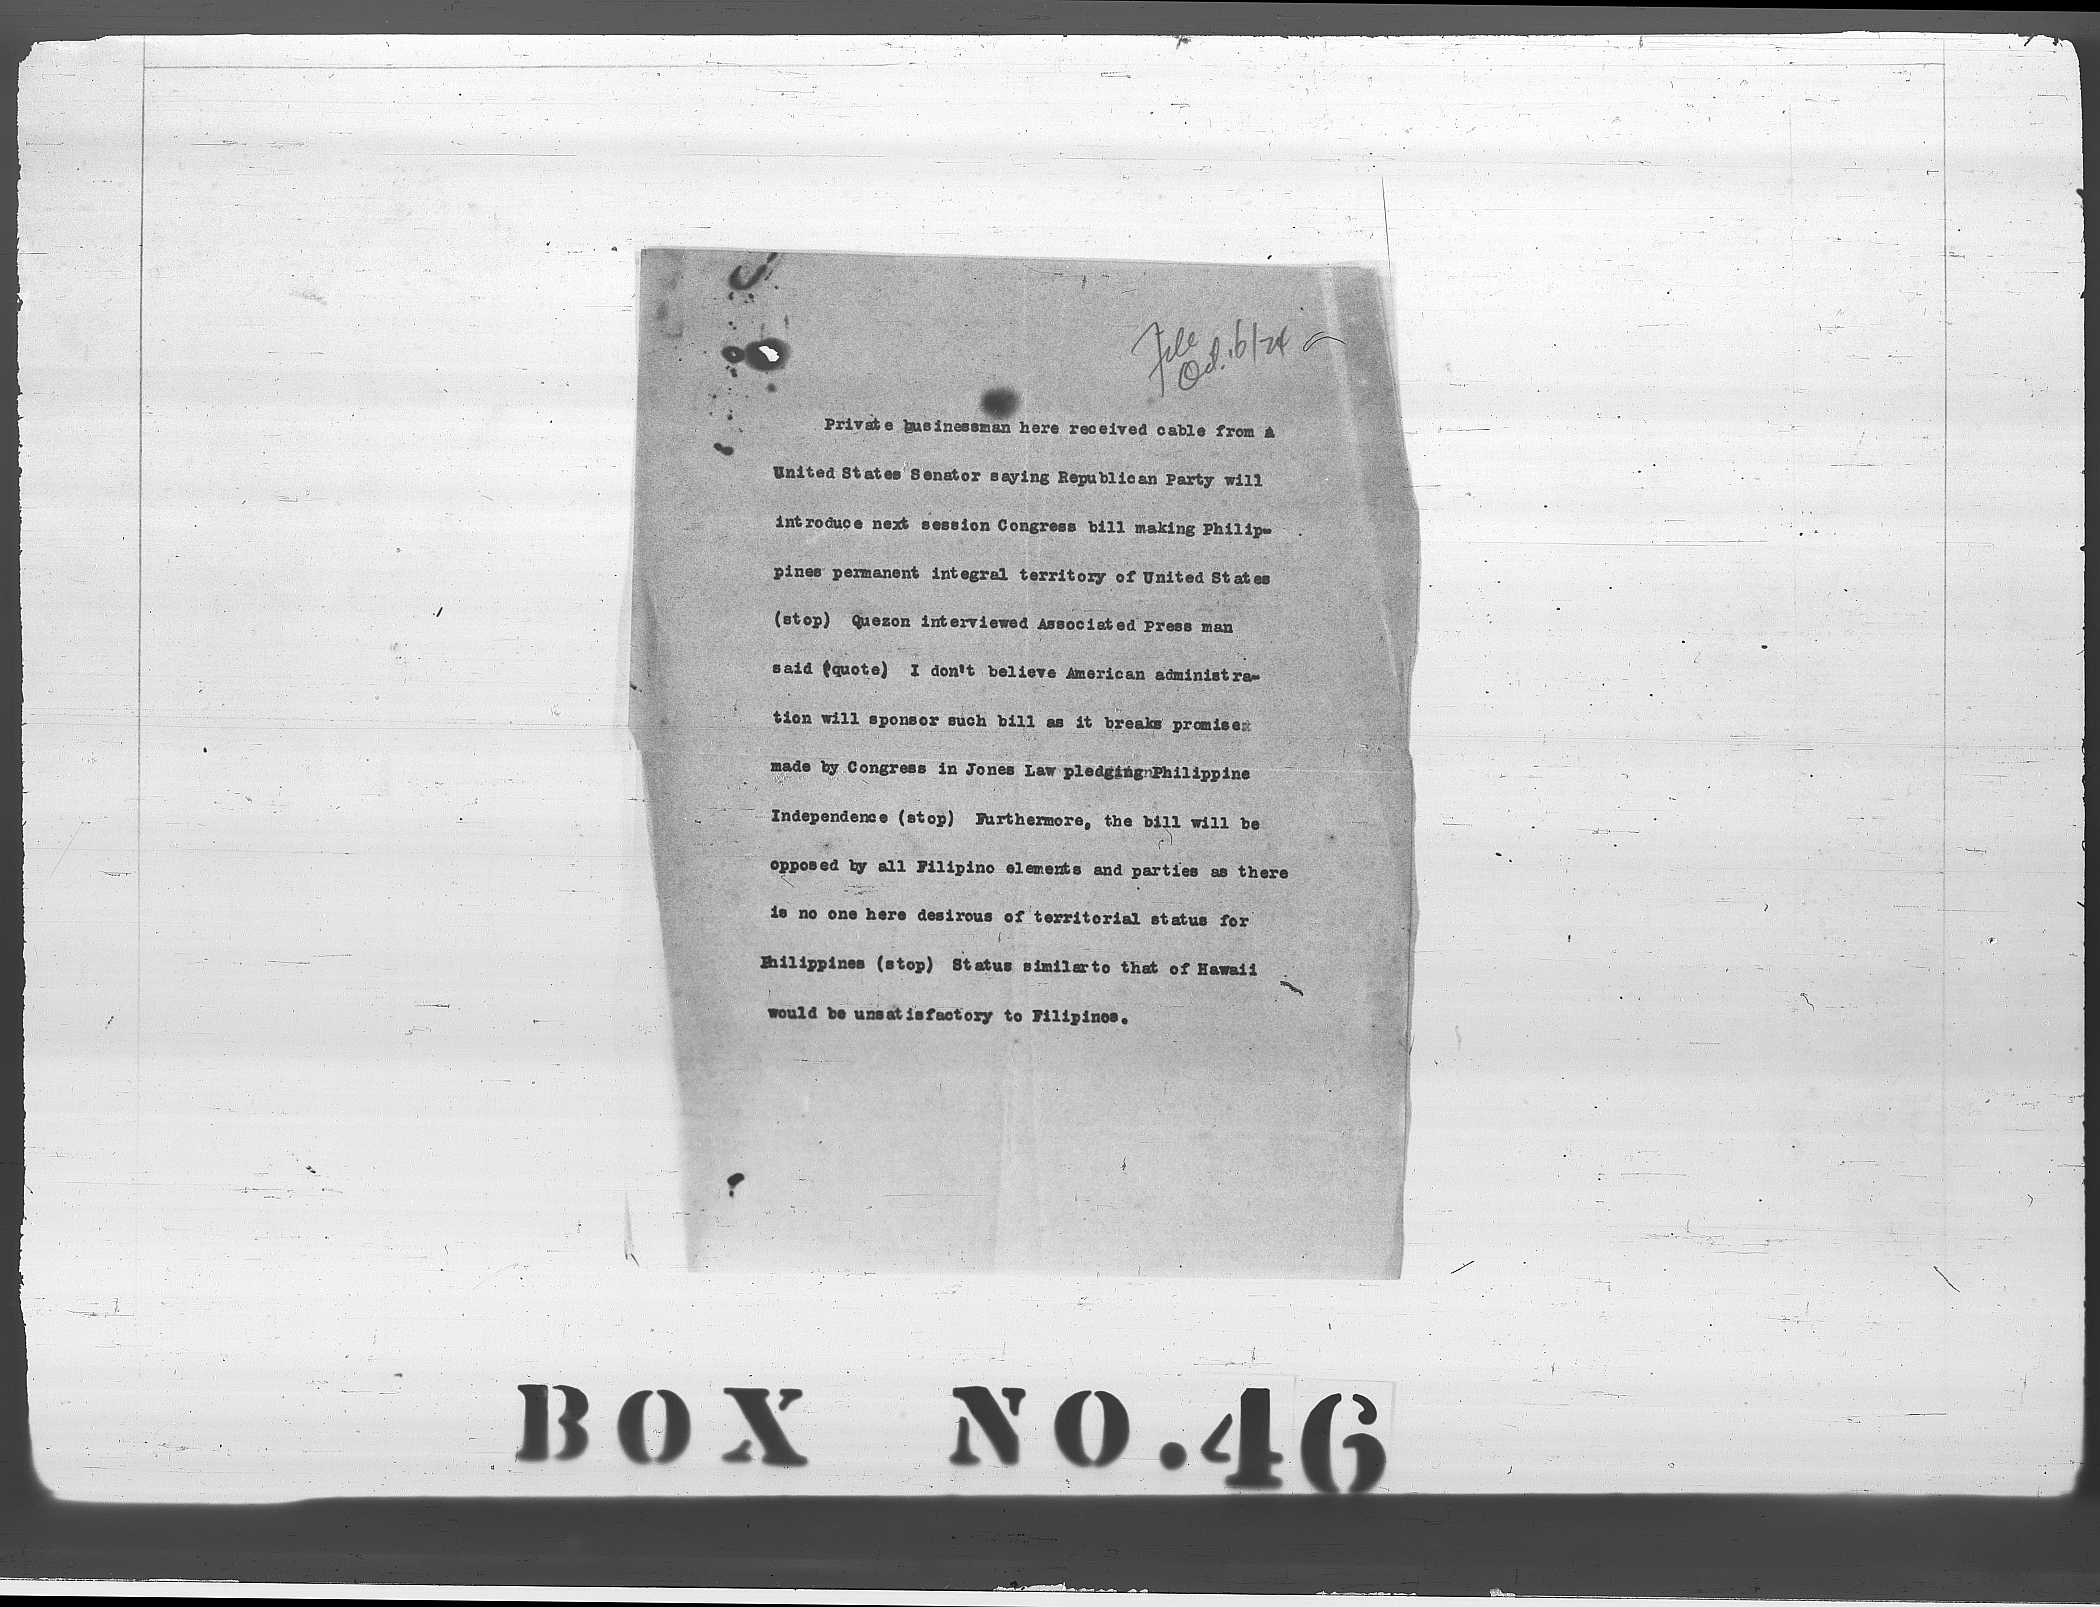 File
Oct. 16/24
Private businessman here received cable from a
United States Senator saying Republican Party will
introduce next session Congress bill making Philip-
pines permanent integral territory of United States
(stop) Quezon interviewed Associated Press man
said (quote) I don't believe American administra-
tion will sponsor such bill as it breaks promise
made by Congress in Jones Law pledging Philippine
Independence (stop) Furthermore, the bill will be
opposed by all Filipino elements and parties as there
is no one here desirous of territorial status for
Philippines (stop) Status similar to that of Hawaii
would be unsatisfactory to Filipinos.
BOX NO.46